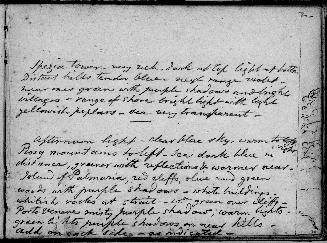 Spezia tower - very rich. Dark at top light at botto
Distant hills tender blue - next range violet -
near ones greens with purple shadows and bright
villages - range of shore bright light with light
yellowish poplars - sea very transparent -
Afternoon light - clear blue sky. warm to
Posey mountains to left. Sea dark blue in
distance, greener with reflections & warmer near
Island of Palmaria red cliffs, blue and green
woods with purple shadows - white buildings -
whitish rocks at strait - in green over cliffs -
Porto Venere misty purple shadows, warm lights -
green lights purple shadows on near hills -
add on one side - as indicated -